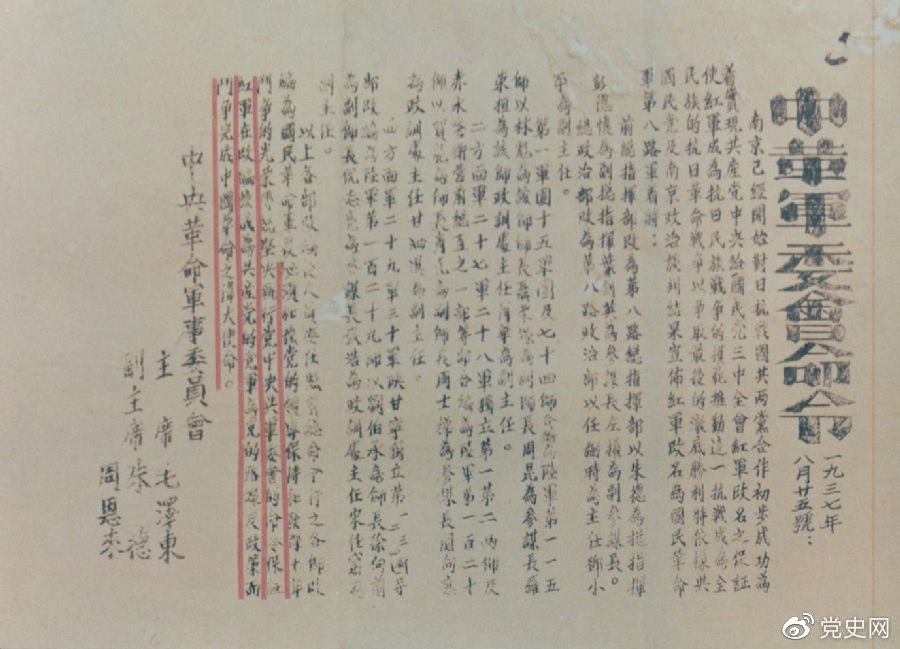 中革軍委會命令
一九三七年
八月廿五號：
南京已經開始對日抗戰國共兩黨合作初步成功為
着實現共產党中央給國民党三中全會紅軍改名之保証
使紅軍成為抗日民族戰争的模範推動這一抗戰成為全
民族的抗日革命戰争以争取最後的澈底勝利特依據共
國民党及南京政治談判結果宣佈紅軍改名為國民革命
軍第八路軍着將：
前總指揮部改為第八路總指揮部以朱德為總指揮
彭德懷為副總指揮葉劍英為參謀長左權為副參謀長。
總政治部改為第八路政治部以任弼時為主任鄧小
平為副主任。
第一軍團十五軍團及七十四師合編為陸軍第一一五
師以林彪為該師師長聶榮臻為副師長周昆為參謀長羅
榮桓為該師政訓處主任肖華為副主任。
二方面軍二十七軍二十八軍獨立第一第二兩師及
赤水警衛營前總直之一部等部合編為陸軍第一百二十
師以賀龍為師長肖克為副師長周士揮為參謀長關向应
為政訓處主任甘泗淇為副主任。
四方面軍二十九軍三十軍陝甘寧獨立第一二三四等
部改編為陸軍第一百二十九師以劉伯承為師長徐向前
為副師長倪志亮為參謀長張浩為政訓處主任宋任窮為
副主任。
以上各部改編後人員委任照前總命令行之各師改
編為國民革命軍後必須加强党的領導保持和發揮十年
鬥争的光荣傳統堅決執行党中央與軍委會的命令保証
紅軍在改編後成為共產党的党軍為党的路線及政策而
鬥争完成中國革命之偉大使命。
中央革命軍事委員會
主席毛澤東
副主席朱德
周恩來
党史网